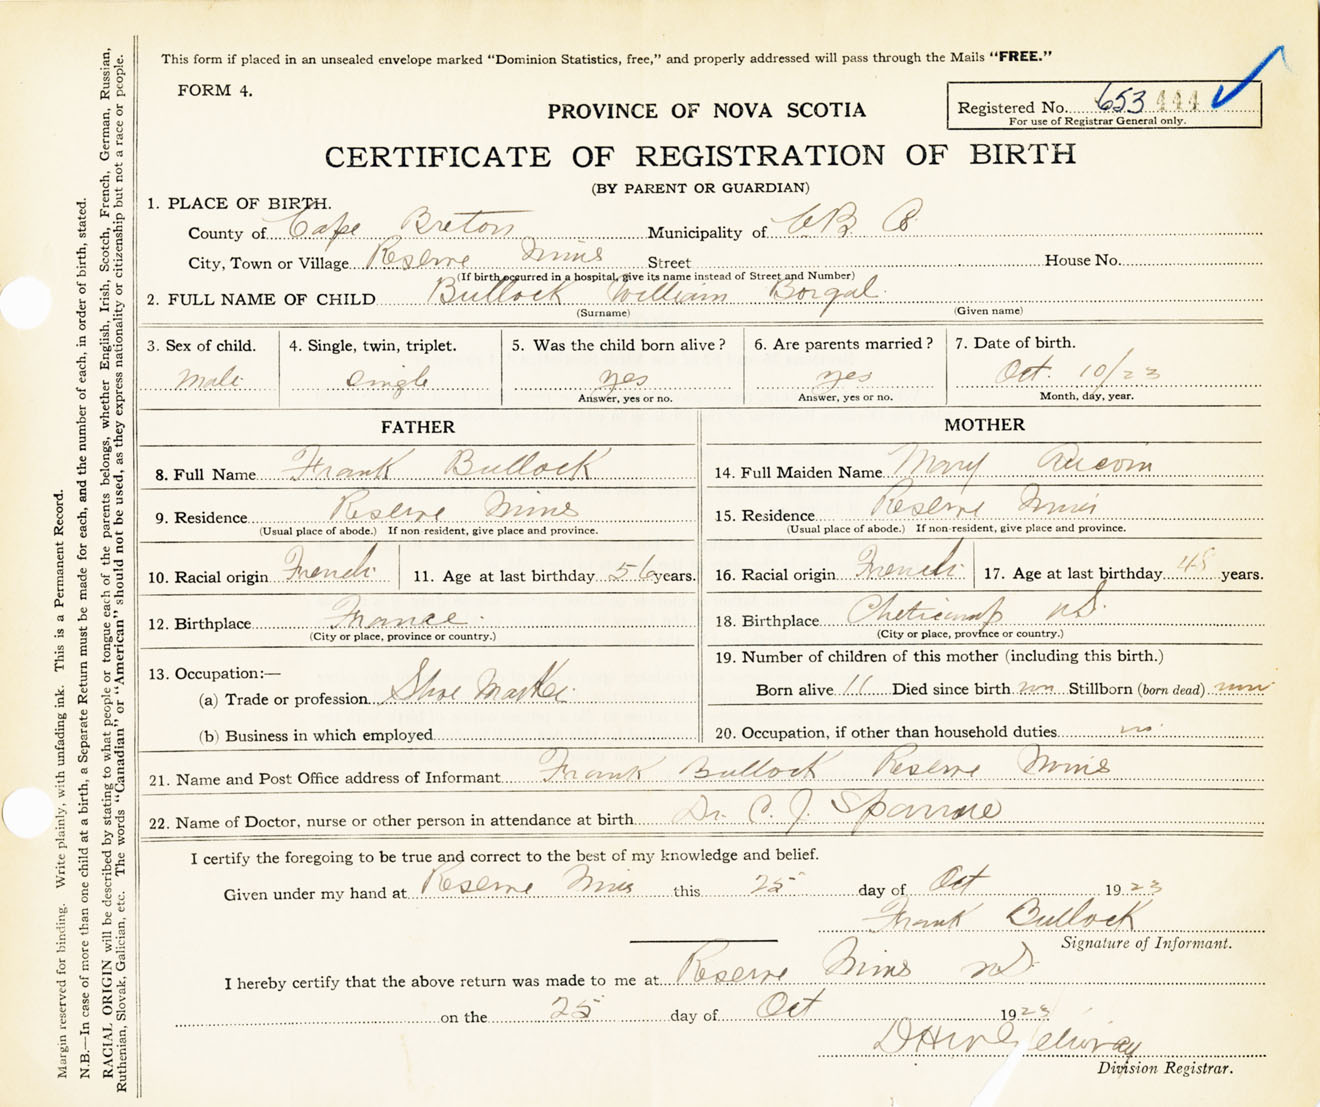 This form if placed in an unsealed envelope marked "Dominion Statistics, free," and properly addressed will pass through the Mails "FREE."
FORM 4.
Registered No. 653 444
For use of Registrar General only.
PROVINCE OF NOVA SCOTIA
CERTIFICATE OF REGISTRATION OF BIRTH
(BY PARENT OR GUARDIAN)
1. PLACE OF BIRTH.
County of Cape Breton Municipality of C B Co
City, Town or Village Reserve Mines Street House No.
(If birth occurred in a hospital, give its name instead of Street and Number)
2. FULL NAME OF CHILD Bullock William Borgal
(Surname) (Given name)
3. Sex of child. 4. Single, twin, triplet. 5. Was the child born alive? 6. Are parents married? 7. Date of birth.
Male single yes yes Oct. 10/23
Answer, yes or no. Answer, yes or no. Month, day, year.
FATHER MOTHER
8. Full Name Frank Bullock
14. Full Maiden Name Mary Aucoin
9. Residence Reserve Mines
(Usual place of abode.) If non-resident, give place and province.
15. Residence Reserve Mines
(Usual place of abode.) If non-resident, give place and province.
10. Racial origin French 11. Age at last birthday 56 years.
16. Racial origin French 17. Age at last birthday 45 years.
12. Birthplace France.
(City or place, province or country.)
18. Birthplace Cheticamp N.S.
(City or place, province or country.)
13. Occupation:—
(a) Trade or profession Shoe Maker
(b) Business in which employed
19. Number of children of this mother (including this birth.)
Born alive 11 Died since birth non Stillborn (born dead) none
20. Occupation, if other than household duties no
21. Name and Post Office address of Informant Frank Bullock Reserve Mines
22. Name of Doctor, nurse or other person in attendance at birth Dr. C. J. Sparrow
I certify the foregoing to be true and correct to the best of my knowledge and belief.
Given under my hand at Reserve Mines this 25 day of Oct 1923
Frank Bullock
Signature of Informant.
I hereby certify that the above return was made to me at Reserve Mines N.S.
on the 25 day of Oct 1923
Division Registrar.
Margin reserved for binding. Write plainly, with unfading ink. This is a Permanent Record.
N.B.—In case of more than one child at a birth, a Separate Return must be made for each, and the number of each, in order of birth, stated.
RACIAL ORIGIN will be described by stating to what people or tongue each of the parents belongs, whether English, Irish, Scotch, French, German, Russian,
Ruthenian, Slovak, Galician, etc. The words "Canadian" or "American" should not be used, as they express nationality or citizenship but not a race or people.